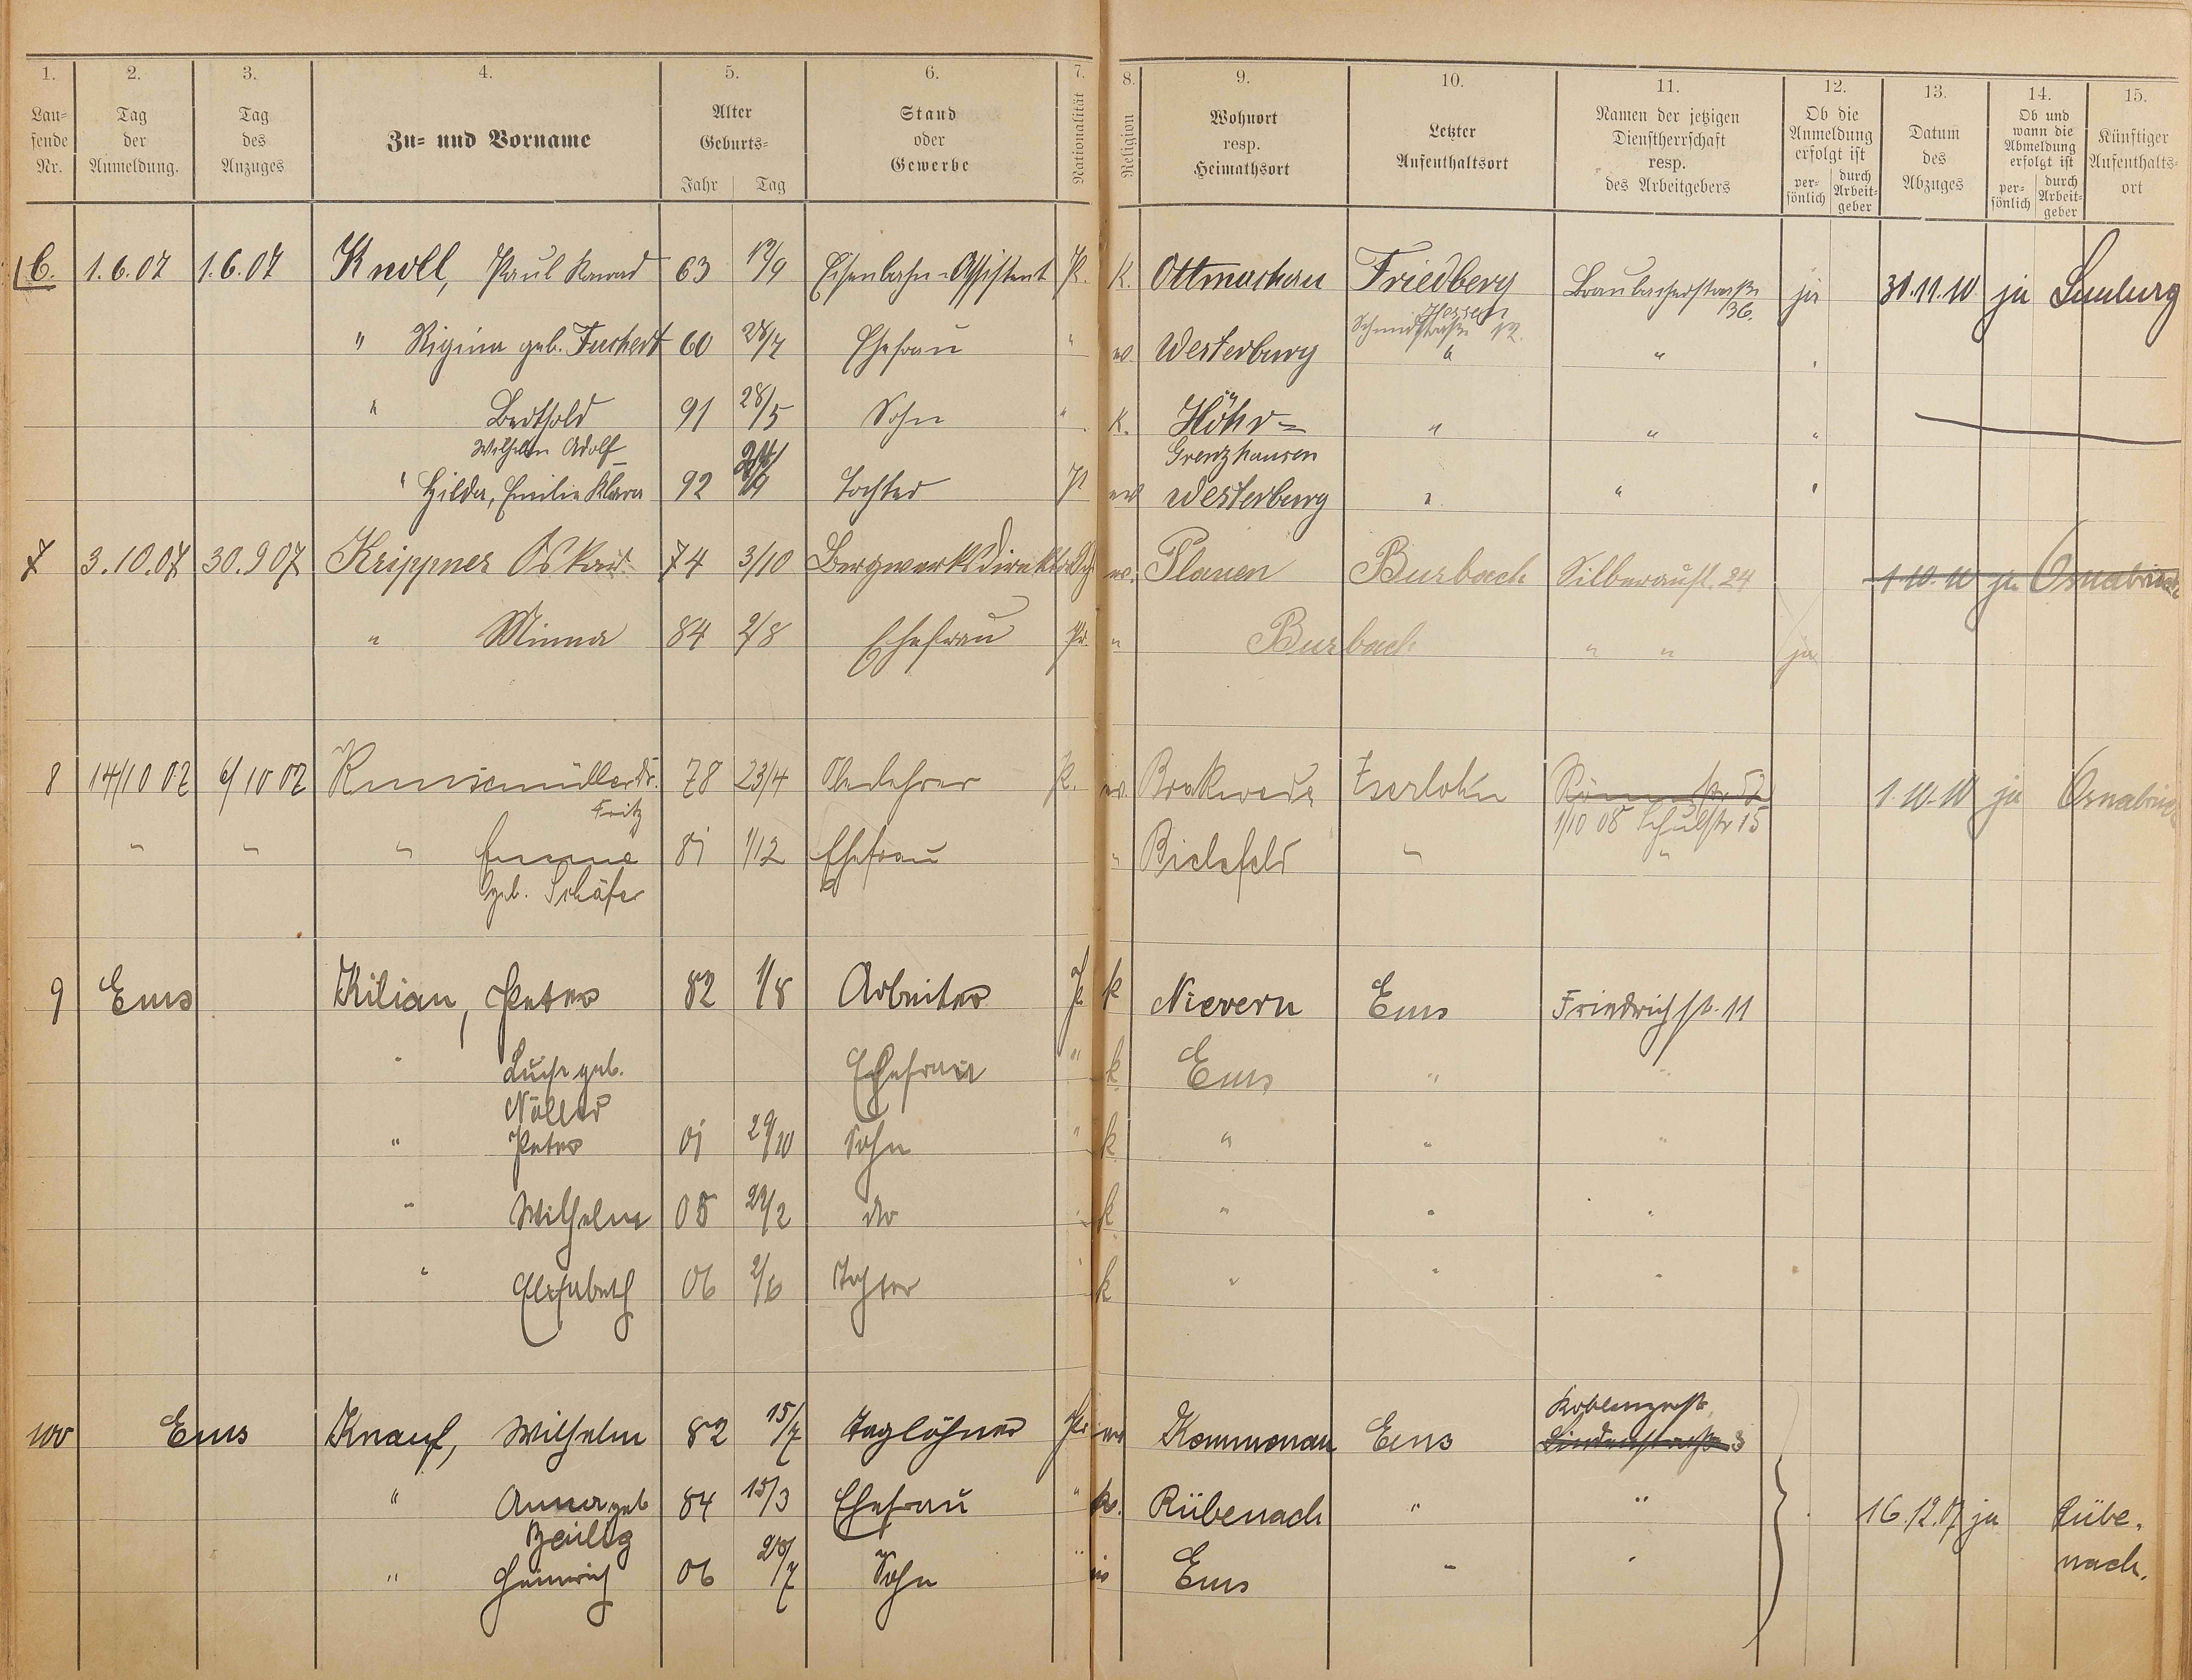 1. 2. 3. 4. 5. 6. 7. 8. 9. 10. 11. 12. 13. 14. 15.
Lau=
fende
Nr.
Tag
der
Anmeldung.
Tag
des
Anzuges
Zu= und Vorname
Alter
Geburts=
Jahr Tag
Stand
oder
Gewerbe
Nationalität
Religion
Wohnort
resp.
Heimathsort
Letzter
Aufenthaltsort
Namen der jetzigen
Dienstherrschaft
resp.
des Arbeitgebers
Ob die
Anmeldung
erfolgt ist
per=
sönlich
durch
Arbeit=
geber
Datum
des
Abzuges
Ob und
wann die
Abmeldung
erfolgt ist
per=
sönlich
durch
Arbeit=
geber
Künftiger
Aufenthalts=
ort
6. 1.6.07 1.6.07 Knoll, Paul Konrad 63 19/9 Eisenbahn=Assistent P. K. Ottmachau Friedberg Braubacherstraße ja 30.11.10 ja Limburg
Hessen 136.
Schmidtstraße 12.
" Regina geb. Fuchert 60 28/7 Ehefrau " ev. Westerburg " "
" Berthold 91 28/5 Sohn " K. Höhr= " " "
Wilhelm Adolf Grenzhausen
" Hilda, Emilie Klara 92 Tochter P ev Westerburg " " "
7 3.10.07 30.9 07 Krippner Oskar 74 3/10 Bergwerksdirektor ev. Plauen Burbach Silberaustr. 24 1.10.10 ja Osnabrück
" Minna 84 2/8 Ehefrau Pr. " Burbach " " ja
8 14/10 07 6/10 07 Dr. 78 23/4 Oberlehrer P. ev. Brakwede Iserlohn 1.10.10 ja Osnabrück
Fritz 1/10 08 Schulstr 15
" " " Emma 81 1/12 Ehefrau " Bielefeld " "
geb. Schäfer
9 Ems Kilian, Peter 82 1/8 Arbeiter P k Nievern Ems Friedrichstr. 11
" Luise geb. Ehefrau " k Ems " "
Nöller
" Peter 01 29/10 Sohn " k " " "
" Wilhelm 05 29/2 do " k " " "
" Elisabeth 06 2/6 Tochter " k " " "
Koblenzerstr.
100 Ems Knauf, Wilhelm 82 15/7 Taglöhner Pr ev Kemmenau Ems Lindenstraße 3
" Anna geb 84 15/3 Ehefrau " k. Rübenach " " 16.12.07 ja Rübe-
nach.
" Heinrich 06 Sohn " Ems " "